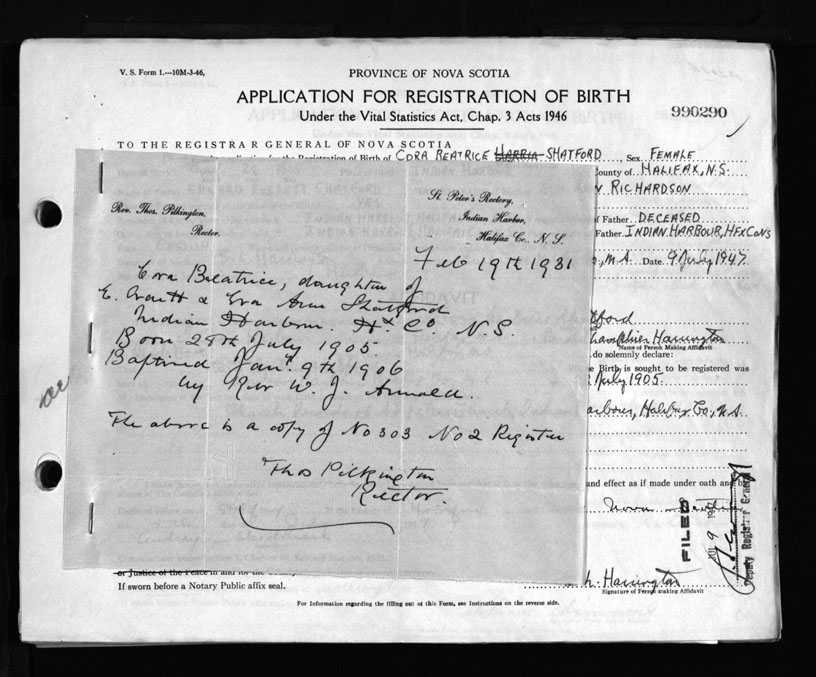 V. S. Form 1.—10M-3-46,
PROVINCE OF NOVA SCOTIA
APPLICATION FOR REGISTRATION OF BIRTH
Under the Vital Statistics Act, Chap. 3 Acts 1946
990290
TO THE REGISTRAR GENERAL OF NOVA SCOTIA
Registration of Birth of CORA BEATRICE HARRIA SHATFORD Sex FEMALE
County of HALIFAX, N.S.
RICHARDSON
of Father DECEASED
Father INDIAN HARBOUR, HFX CO NS
Date 9 July 1947
Rev. Thos. Pilkington,
Rector.
St. Peter's Rectory,
Indian Harbor,
Halifax Co., N. S.
Feb 19th 1931
Cora Beatrice, daughter of
E. Everett & Eva Ann Shatford
Indian Harbour Hx Co. N.S.
Born 28th July 1905.
Baptized Jan. 9th 1906
by Rev W. J. Arnold.
The above is a copy of No 303 No 2 Register
Thos Pilkington
Rector.
Harrington
Name of Person Making Affidavit
do solemnly declare:
Birth is sought to be registered was
July 1905.
Halifax Co., N.S.
and effect as if made under oath and by
Nova
FILED
Deputy Registrar General
or Justice of the Peace in and for the
If sworn before a Notary Public affix seal.
Harrington
Signature of Person making Affidavit
For Information regarding the filling out of this Form, see Instructions on the reverse side.